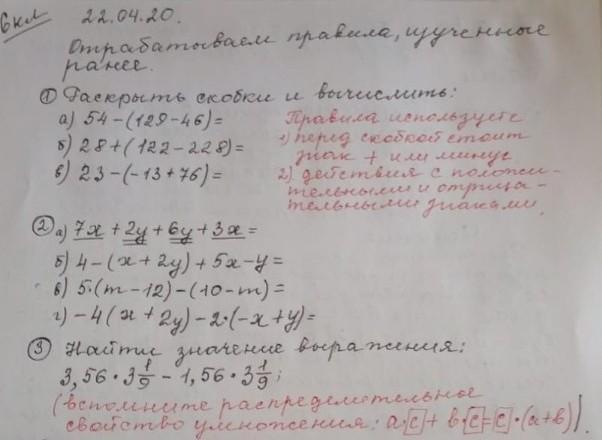 6 кл 22.04.20.
Отрабатываем правила, изученные
ранее.
① Раскрыть скобки и вычислить:
а) 54-(129-46)=
б) 28+(122-228)=
в) 23-(-13+76)=
Правила используете
1) перед скобкой стоит
знак + или минус
2) действия с положи-
тельными и отрица-
тельными знаками.
② а) 7x + 2y + 6y + 3x =
б) 4-(x+2y)+5x-y=
в) 5·(m-12)-(10-m)=
г) -4(x+2y)-2·(-x+y)=
③ Найти значение выражения:
3,56·3 1/9 - 1,56·3 1/9;
(вспомните распределительное
свойство умножения: a·c + b·c = c·(a+b))